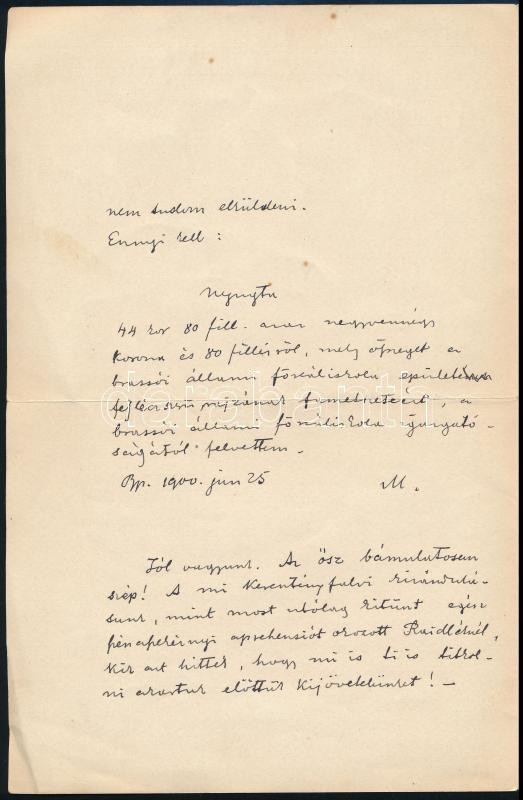 nem tudom elküldeni.
Ennyi kell:
Nyugta
44 kor 80 fill. azaz negyvennégy
korona és 80 fillérről, mely összeget a
brassói állami főreáliskola épületének
a
brassói állami főreáliskola igazgató-
ságától felvettem.
Bp. 1900. jún 25 M.
Jól vagyunk. Az ősz bámulatosan
szép! A mi Keresztényfalvi kirándulá-
sunk, mint most utólag kitűnt egész
apprehensiót okozott Raidléknél,
kik azt hitték, hogy mi is ti is titkol-
ni akartuk előttük kijövetelünket! —
darabanth